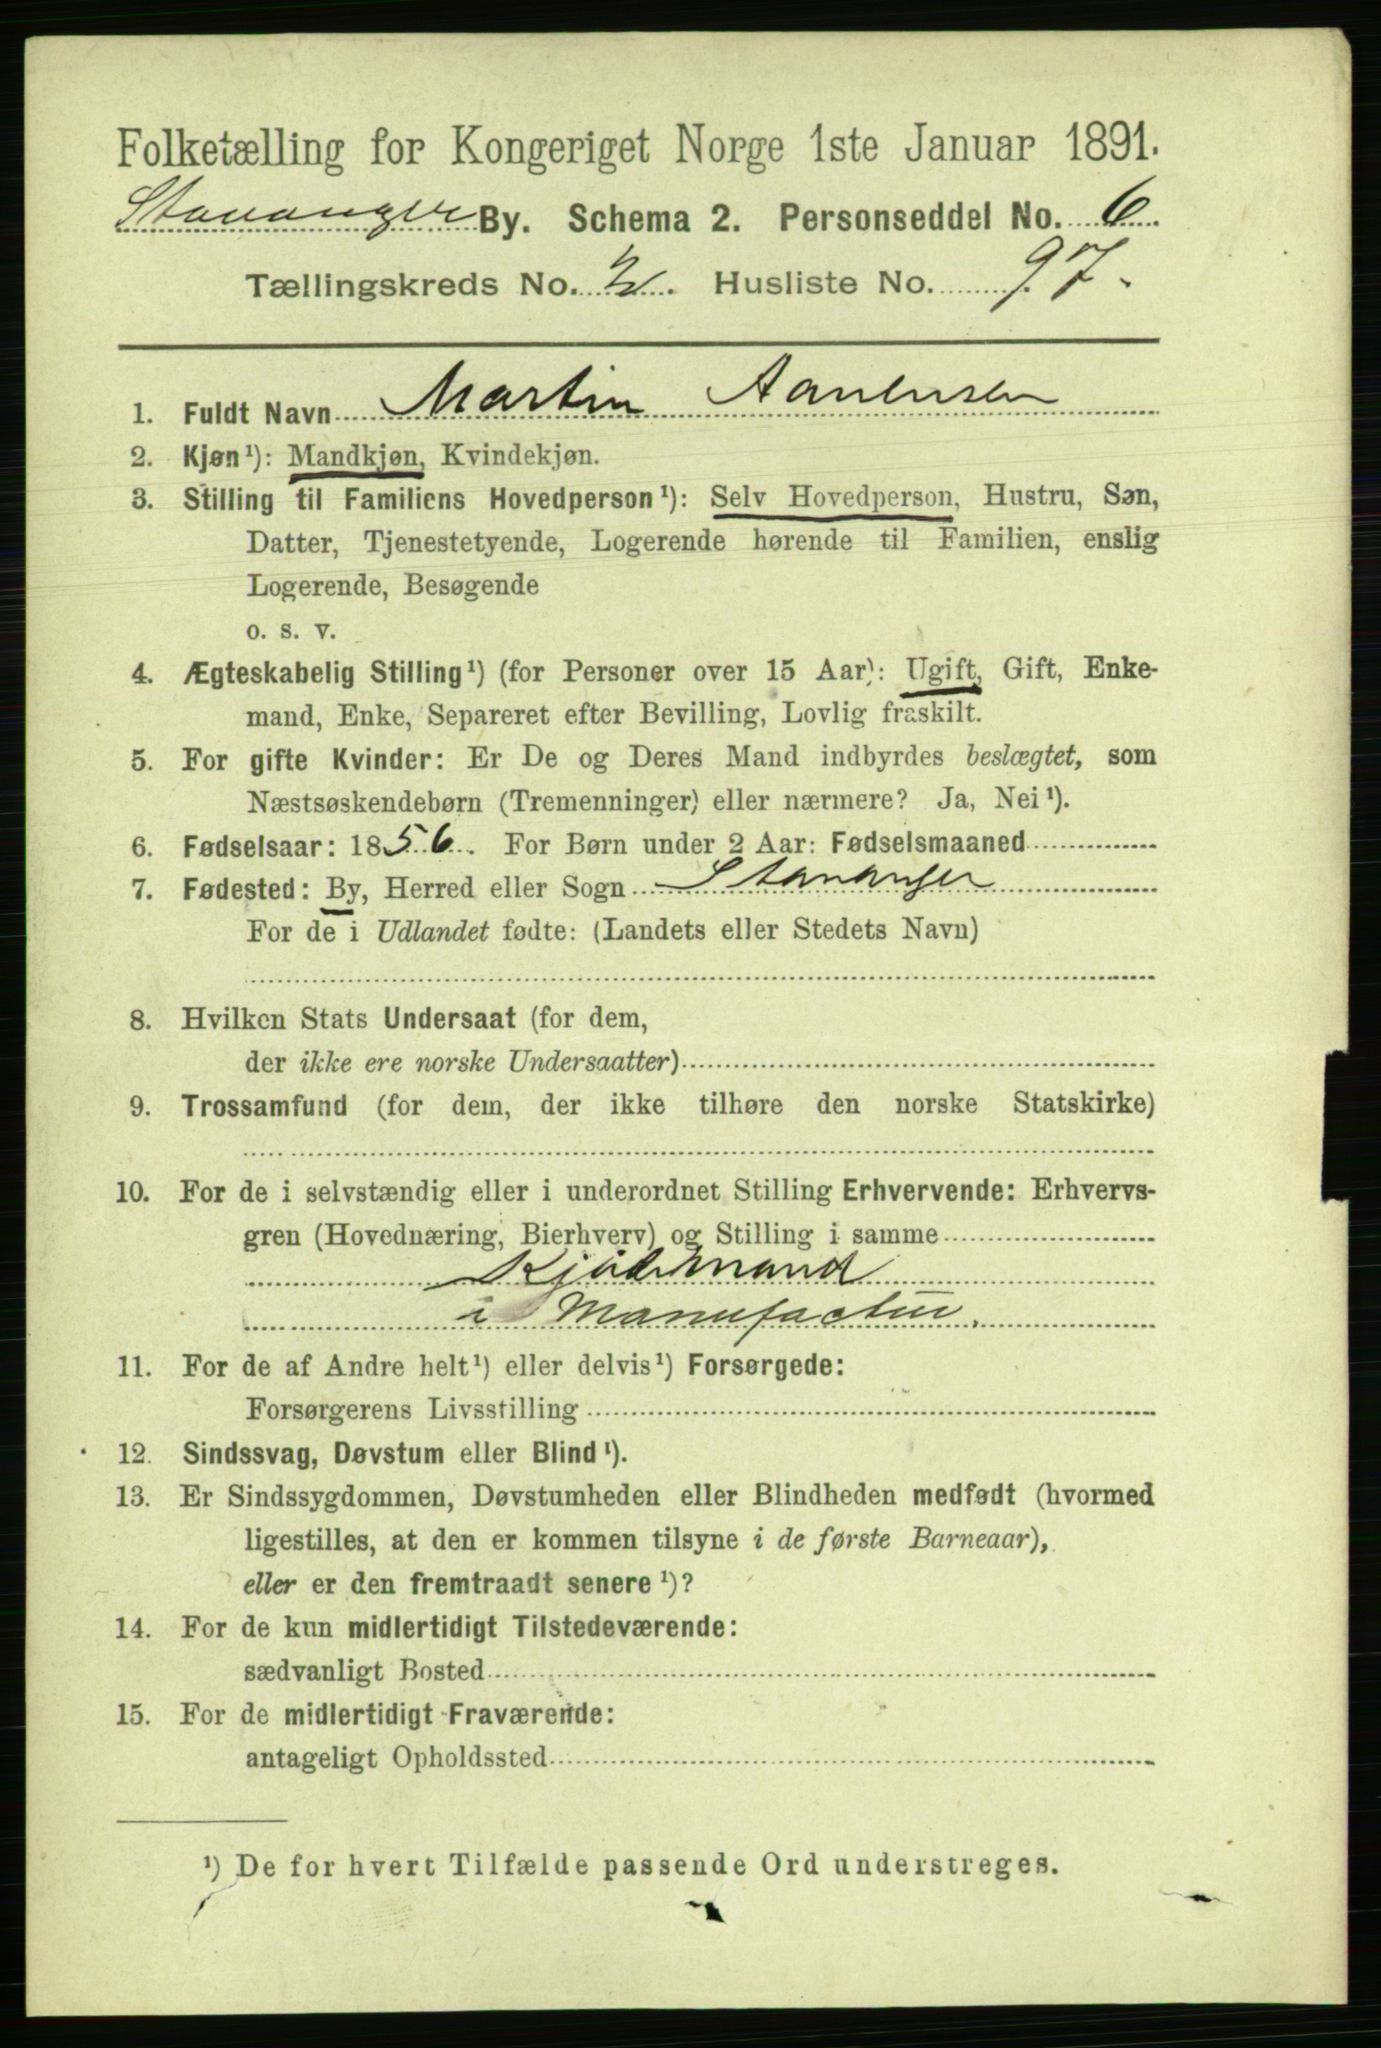 Folketælling for Kongeriget Norge 1ste Januar 1891.
Stavanger By. Schema 2. Personseddel No. 6
Tællingskreds No. 2. Husliste No. 97.
1. Fuldt Navn Martin Aanensen
2. Kjøn¹): Mandkjøn, Kvindekjøn.
3. Stilling til Familiens Hovedperson¹): Selv Hovedperson, Hustru, Søn,
Datter, Tjenestetyende, Logerende hørende til Familien, enslig
Logerende, Besøgende
o. s. v.
4. Ægteskabelig Stilling¹) (for Personer over 15 Aar): Ugift, Gift, Enke-
mand, Enke, Separeret efter Bevilling, Lovlig fraskilt.
5. For gifte Kvinder: Er De og Deres Mand indbyrdes beslægtet, som
Næstsøskendebørn (Tremenninger) eller nærmere? Ja, Nei¹).
6. Fødselsaar: 1856. For Børn under 2 Aar: Fødselsmaaned
7. Fødested: By, Herred eller Sogn Stavanger
For de i Udlandet fødte: (Landets eller Stedets Navn)
8. Hvilken Stats Undersaat (for dem,
der ikke ere norske Undersaatter)
9. Trossamfund (for dem, der ikke tilhøre den norske Statskirke)
10. For de i selvstændig eller i underordnet Stilling Erhvervende: Erhvervs-
gren (Hovednæring, Bierhverv) og Stilling i samme
Kjøbmand
i Manufactur.
11. For de af Andre helt¹) eller delvis¹) Forsørgede:
Forsørgerens Livsstilling
12. Sindssvag, Døvstum eller Blind¹).
13. Er Sindssygdommen, Døvstumheden eller Blindheden medfødt (hvormed
ligestilles, at den er kommen tilsyne i de første Barneaar),
eller er den fremtraadt senere¹)?
14. For de kun midlertidigt Tilstedeværende:
sædvanligt Bosted
15. For de midlertidigt Fraværende:
antageligt Opholdssted
¹) De for hvert Tilfælde passende Ord understreges.